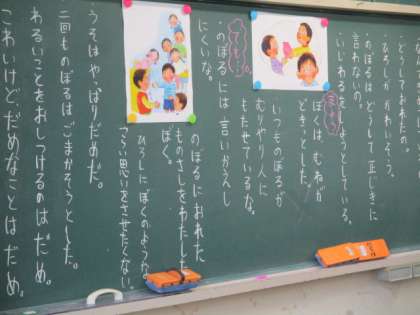 どうしておれたの。
ひろしがかわいそう。
のぼるはどうして正じきに
言わないの。
いじわるを しようとしている。
ぼくは、むねが
どきっとした。
いつものぼるが
むりやり人に
もたせているな。
でも…
のぼるには言いかえし
にくいな。
のぼるにおれた
ものさしをわたした
ぼく。
ひろしにぼくのような
つらい思いをさせたくない。
うそはやっぱりだめだ。
二回ものぼるはごまかそうとした。
わるいことをおしつけるのはだめ。
こわいけど、だめなことはだめ。